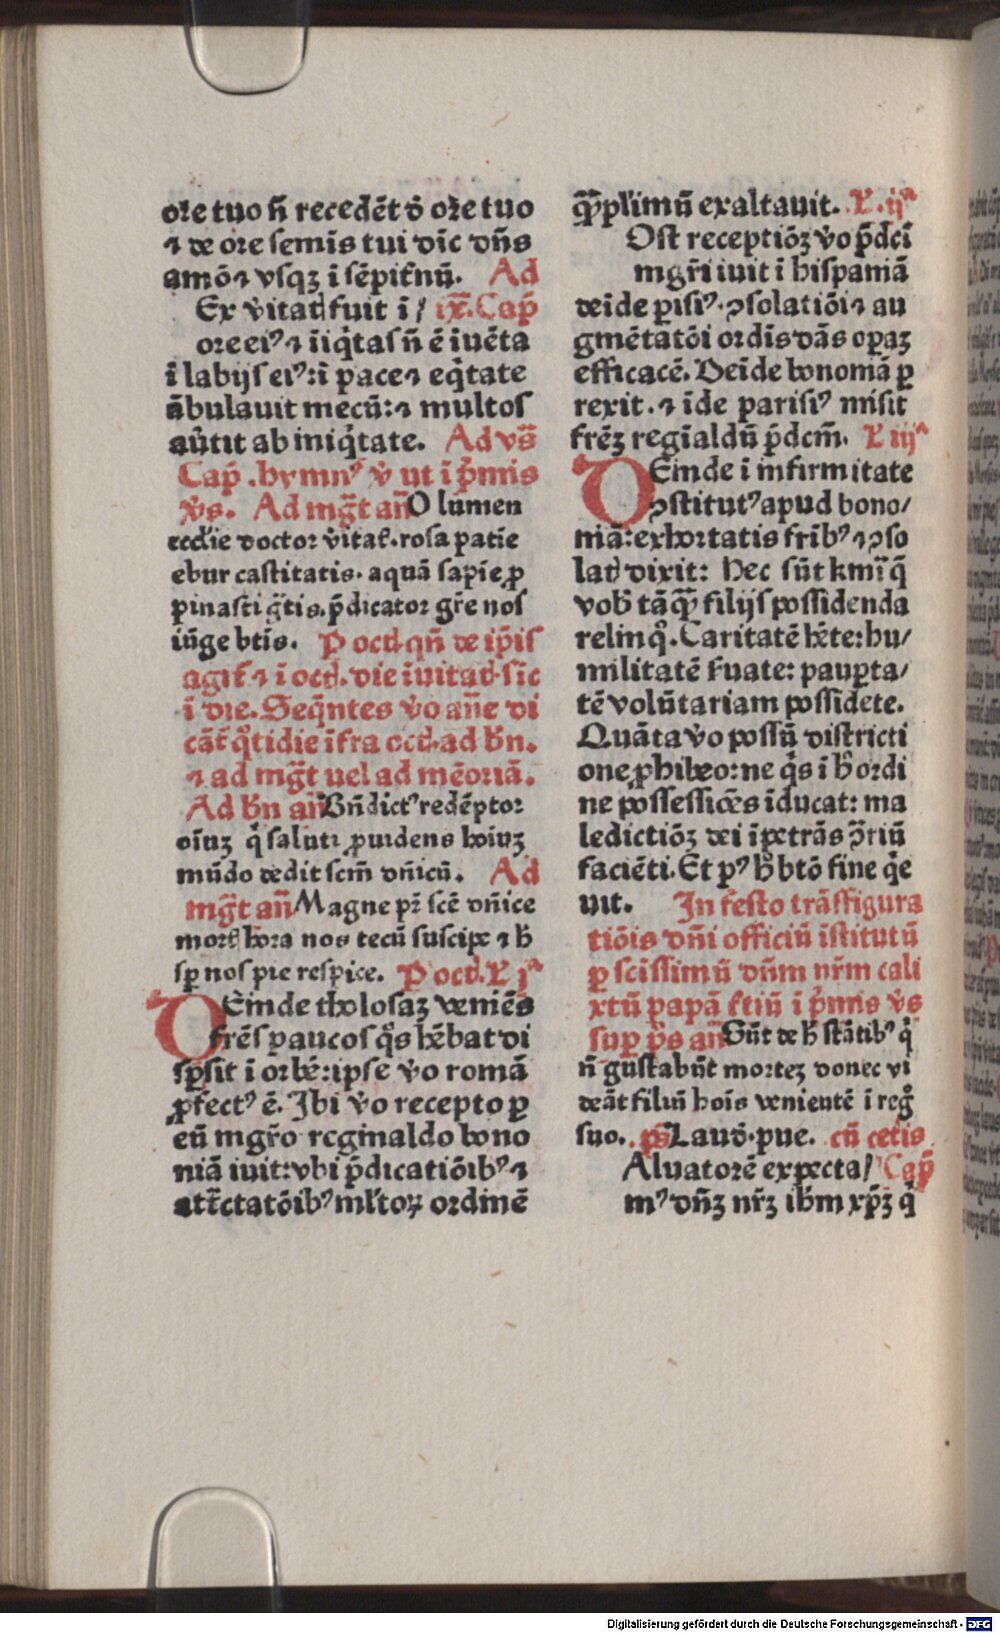 ore tuo n̄ recedēt ď ore tuo
⁊ de ore semīs tui dic̄ dn̄s
amō⁊ vsqꝫ ī sēpit̄nū. Ad
Ex v̄itatꝭ fuit ī / ix. Cap̄
ore eiꝰ ⁊ īiq̇tas n̄ ē īuēta
ī labijs eiꝰ: ī pace ⁊ eq̇tate
ābulauit mecū: ⁊ multos
aūtit ab iniq̇tate. Ad vs̄
Cap̄ .hymnꝰ v̄ ut ī p̄mis
v̄s. Ad mḡt an̄ O lumen
eccꝉie doctor v̄itaꝭ. rosa patīe
ebur castitatis. aquā sapīe ꝓ
pinasti gr̄tis. p̄dicator gr̄e nos
iūge btīs. P octꝭ. qn̄ de ip̄is
agiꝭ ⁊ ī octꝭ. die īuitatꝭ. sic̄
ī die. Seq̄ntes v̄o an̄e di
cāt̄ q̊tidie īfra octꝭ. ad bn̄.
⁊ ad mḡt uel ad mēoriā.
Ad bn̄ an̄ Bn̄dictꝰ redēptor
oīuꝫ q̇ saluti ꝓuidens hoīuꝫ
mūdo dedit scm̄ dn̄icū. Ad
mḡt an̄ Magne pr̄ scē dn̄ice
mortꝭ hora nos tecū suscipe ⁊ h̄
sꝑ nos pie respice. P octꝭ. L̄ jᵃ
DEinde tholosaꝫ veniēs
frēs paucos q̊s hēbat di
sꝑsit ī orbē: ipse v̄o romā
ꝓfectꝰ ē. Ibi v̄o recepto ꝑ
eū mgr̄o reginaldo bono
niā iuit: vbi p̄dicatiōibꝰ ⁊
attr̄ctatōibꝰ mꝉtoꝝ ordinē
qꝫ̄ plīmū exaltauit. L̄ .ijᵃ
Ost receptiōꝫ v̄o p̄dc̄i
mgr̄i iuit ī hispaniā
deīde ꝑisiꝰ. ꝯsolatiōi ⁊ au
gmētatōi ordīs dās opaꝫ
efficacē. Deīde bonomā ꝑ
rexit. ⁊ īde parisiꝰ misit
frēꝫ regīaldū p̄dcm̄. L̄ iijᵃ
DEinde ī infirmitate
ꝯstitutꝰ apud bono/
niā: exhortatis fribꝰ ⁊ ꝯso
latꝭ dixit: Hec sūt kmī q̄
vob̄ tāqꝫ̄ filijs possidenda
relinq̊. Caritatē hēte: hu/
militatē ẜuate: paupta/
tē volūtariam possidete.
Quāta v̄o possū districti
one ꝓhibeo: ne q̇s ī h̄ ordi
ne possessiōes īducat: ma
ledictiōꝫ dei īpetrās ꝯ̄riū
faciēti. Et pꝰ h̄ btō fine q̇e
uit. In festo trāsfigura
tiōis dn̄i officiū īstitutū
ꝑ scissimū dn̄m nr̄m cali
xtū papā ẜtiū ī p̄mis v̄s
suꝑ p̄s an̄ Sūt de h̄ stātibꝰ q̇
n̄ gustabūt morteꝫ donec vi
deāt filiū hoīs venientē ī reg̊
suo. ps̄ Laudꝭ. pue. cū cetīs
Aluatorē expecta/ Cap̄
mꝰ dn̄ꝫ nr̄ꝫ ihm̄ xp̄ꝫ q̇
Digitalisierung gefördert durch die Deutsche Forschungsgemeinschaft - DFG